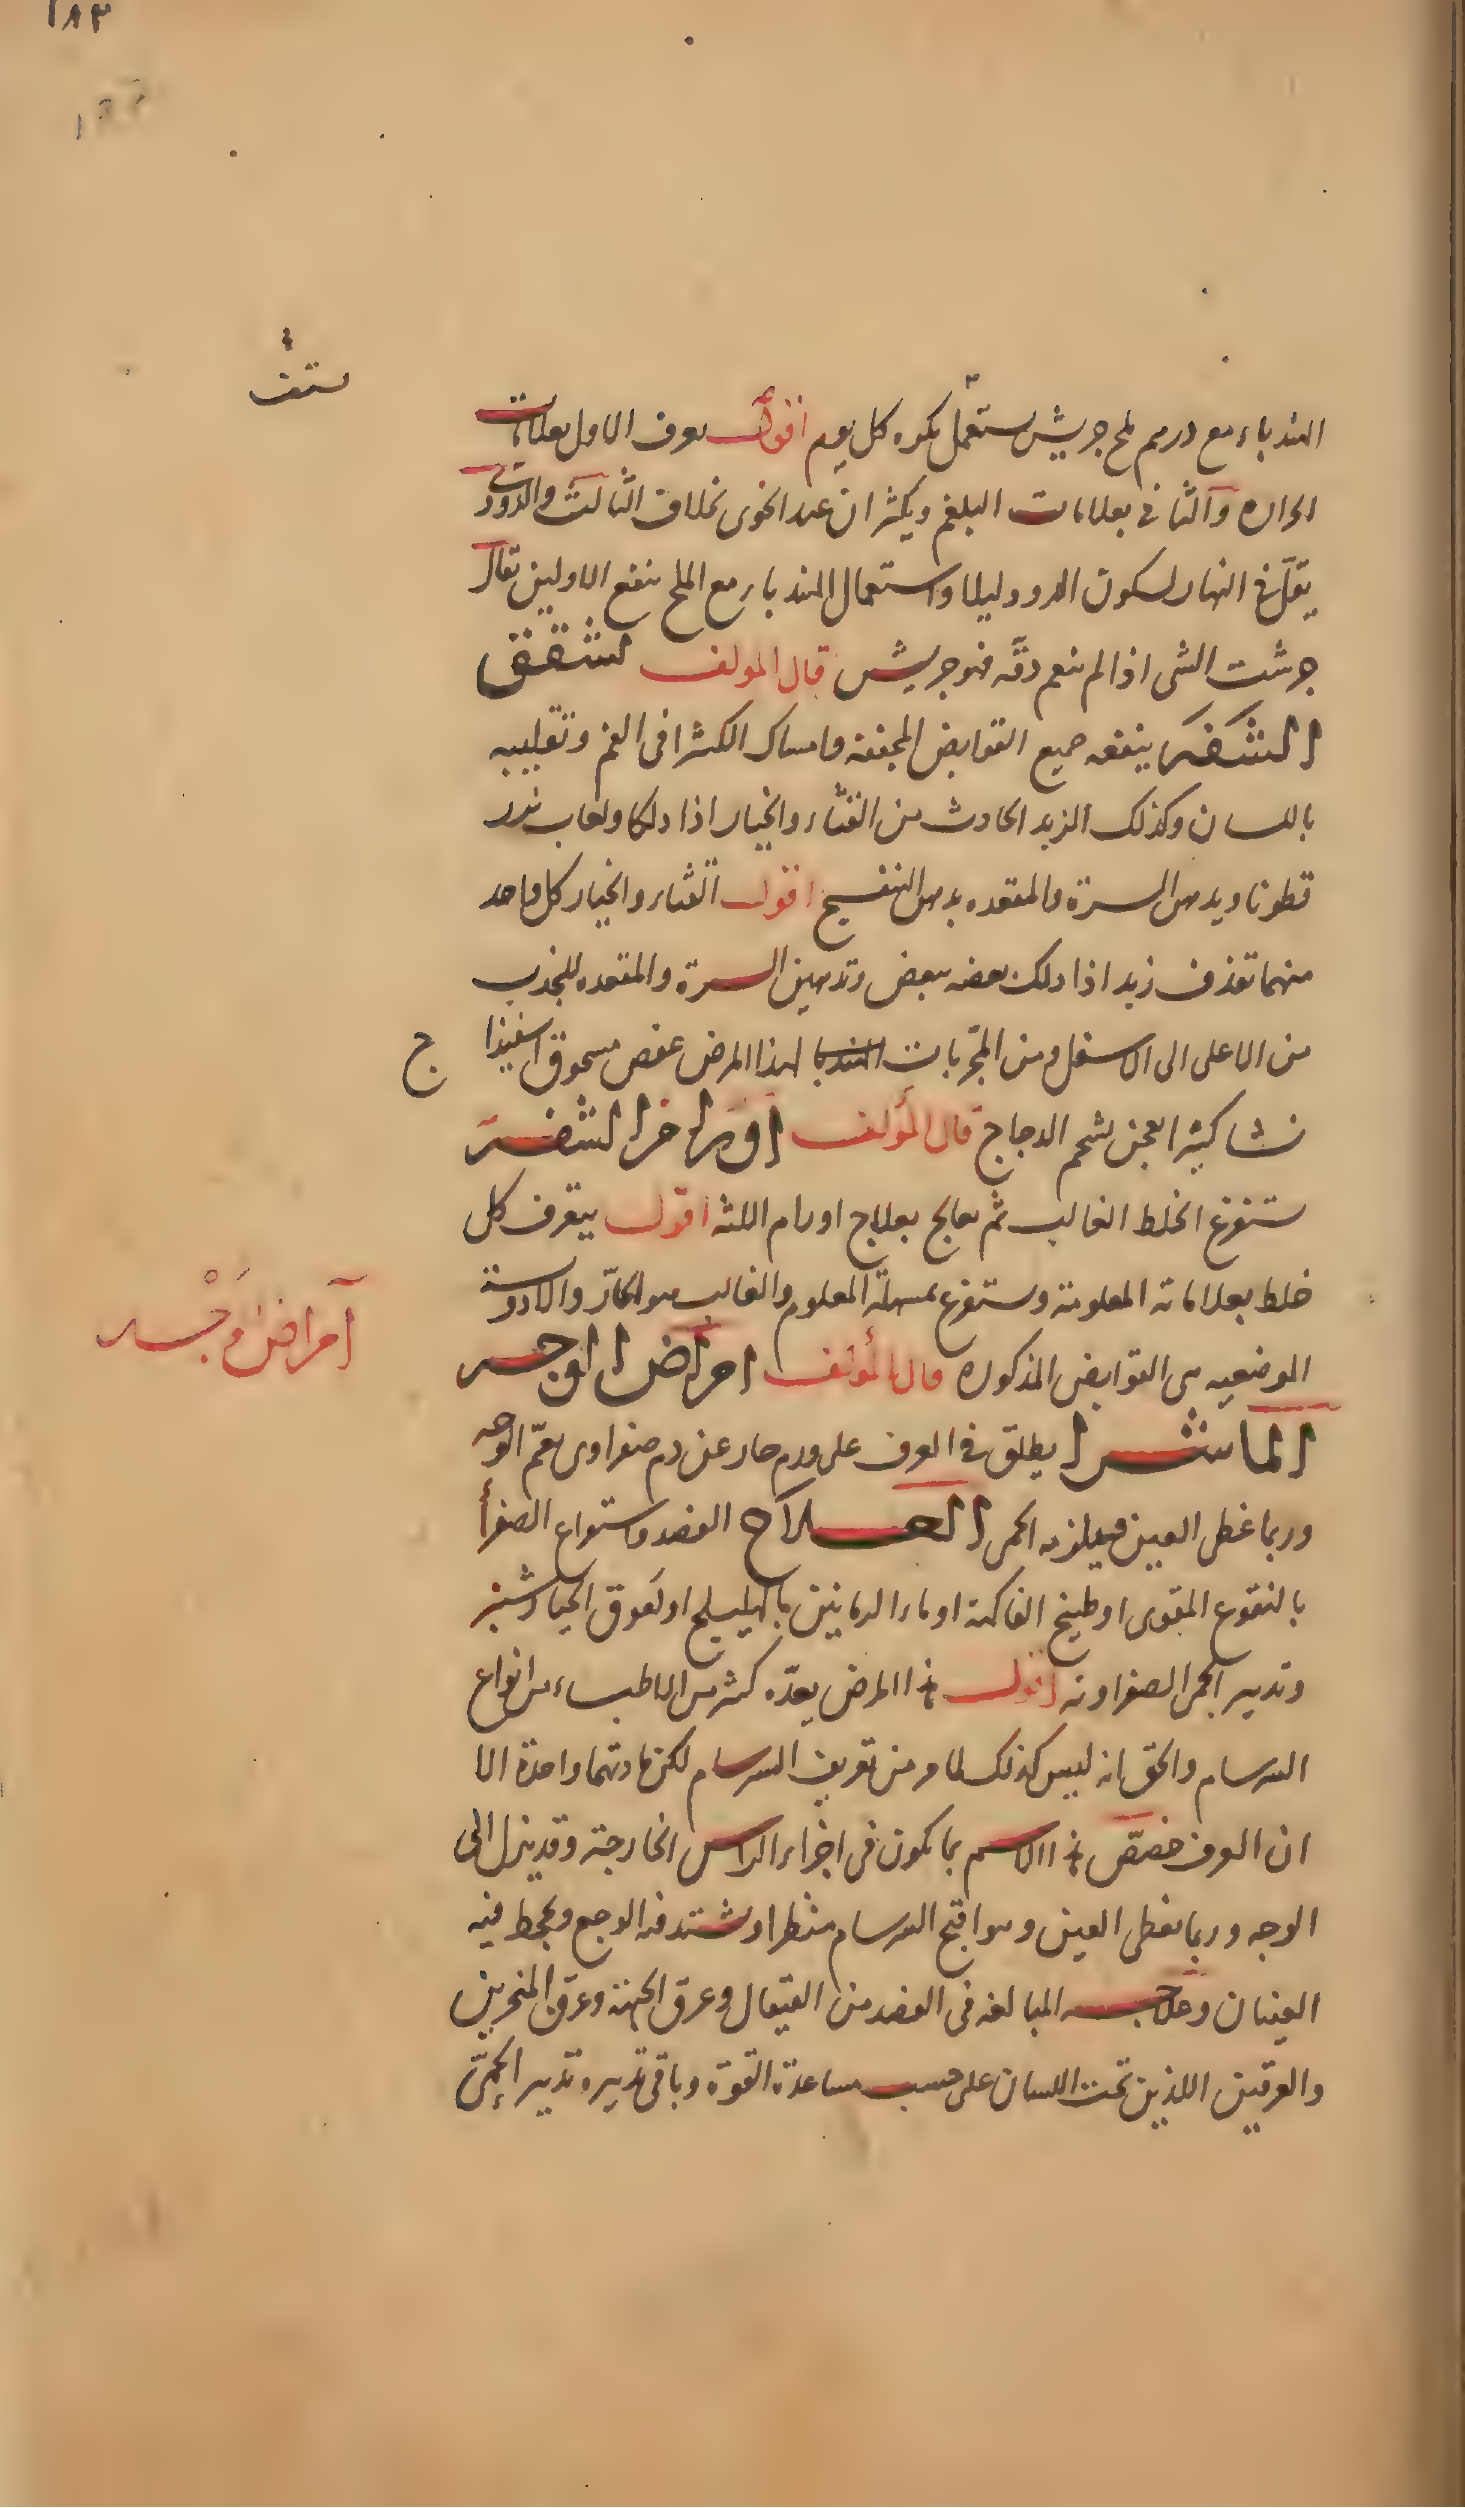 ١٨٣
الهندباء مع درهم ملح جريش يستعمل بكره كل يوم اقول يعرف الاول بعلامات
الحراره والثانى بعلامات البلغم ويكثر ان عند الخوى بخلاف الثالث والدودى
يقل فى النهار لسكون الدود ليلا واستعمال الهندباء مع الملح ينفع الاولين يقال
جرشت الشى اذا لم ينعم دقه فهو جريش قال المولف تشقق
الشفة ينفعه جميع القوابض المجففه وامساك الكثيرا فى الفم وتقليبه
باللسان وكذلك الزبد الحادث من القثاء والخيار اذا دلكا ولعاب بزر
قطونا ويدهن السرة والمقعده بدهن البنفسج اقول القثاء والخيار كل واحد
منهما تقذف زبد اذا دلك بعضه ببعض وتدهين السرة والمقعده للجذب
من الاعلى الى الاسفل ومن المجربات لهذا المرض عفص مسحوق اسفيذا
ج
نشا كثيرا يعجن بشحم الدجاج قال المؤلف اورام الشفة
يستفرغ الخلط الغالب ثم يعالج بعلاج اورام اللثه اقول يتعرف كل
خلط بعلاماته المعلومة ويستفرغ بمسهله المعلوم والغالب هو الحار والادوية
الموضعيه هى القوابض المذكوره قال المؤلف امراض الوجه
امراض وجه
الماشرا يطلق فى العرف على ورم حار عن دم صفراوى يعم الوجه
وربما غطى العين ويلزمه الحمى العلاج الفصد واستفراغ الصفرأ
بالنقوع المقوى او طبيخ الفاكهة او ماء الرمانين بالهليلج او لعوق الخيارشنبر
وتدبير الحمى الصفراوية اقول هذا المرض يعده كثير من الاطباء من انواع
السرسام والحق انه ليس كذلك لما مر من تعريف السرسام لكن مادتهما واحدة الا
ان العرف خصص هذا الاسم بما يكون فى اجزاء الراس الخارجة وقد ينزل الى
الوجه وربما يغطى العين وهو اقبح السرسام منظرا ويشتد فيه الوجع ويجحظ فيه
العينان وعلاجه المبالغه فى الفصد من القيفال وعرق الجبهة وعرق المنخرين
والعرقين اللذين تحت اللسان على حسب مساعدة القوة وباقى تدبيره تدبير الحمى